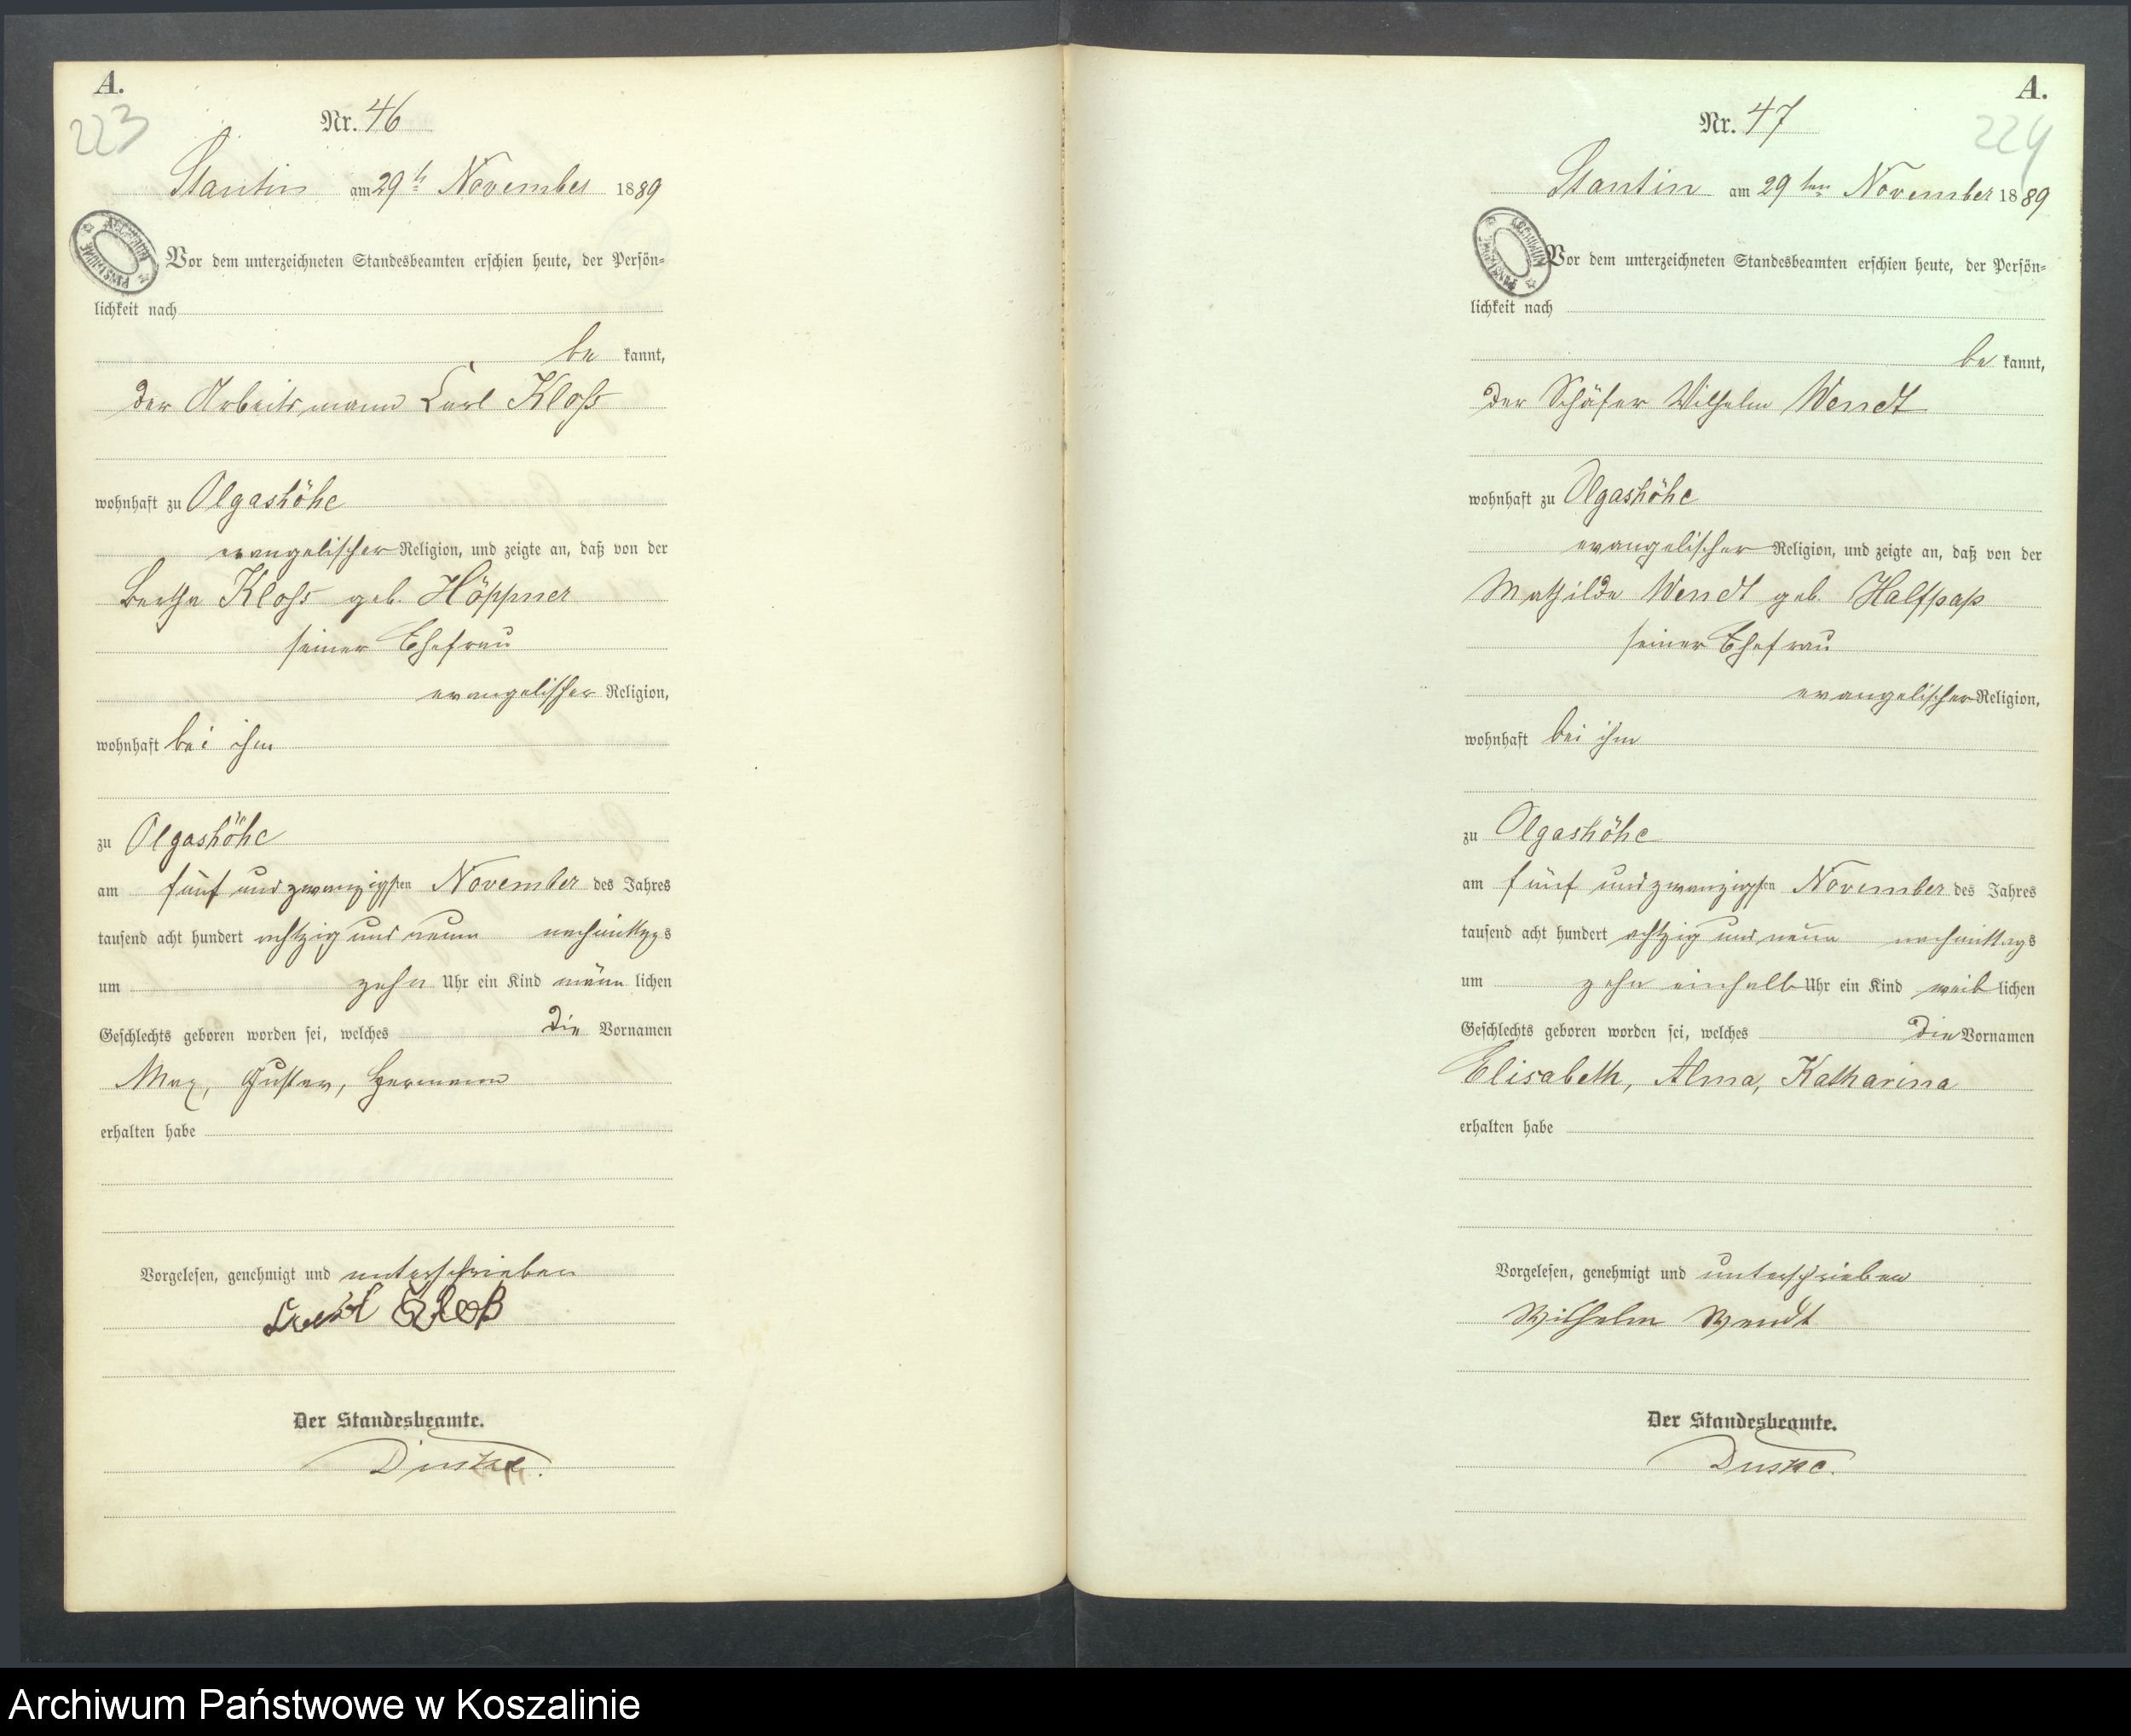 A.
223
Nr. 46
Stantin am 29t November 1889
ARCHIWUM PAŃSTWOWE
Vor dem unterzeichneten Standesbeamten erschien heute, der Persön=
lichkeit nach
be kannt,
der Arbeitsmann Carl Kloß
wohnhaft zu Olgashöhe
evangelischer Religion, und zeigte an, daß von der
Bertha Kloß geb. Höppner
seiner Ehefrau
evangelischer Religion,
wohnhaft bei ihm
zu Olgashöhe
am fünf und zwanzigsten November des Jahres
tausend acht hundert achtzig und neun nachmittags
um zehn Uhr ein Kind männ lichen
Geschlechts geboren worden sei, welches die Vornamen
Max, Gustav, Hermann
erhalten habe
Vorgelesen, genehmigt und unterschrieben
Carl Kloß
Der Standesbeamte.
A.
Nr. 47
224
Stantin am 29ten November 1889
ARCHIWUM PAŃSTWOWE
Vor dem unterzeichneten Standesbeamten erschien heute, der Persön=
lichkeit nach
be kannt,
der Schäfer Wilhelm Wendt
wohnhaft zu Olgashöhe
evangelischer Religion, und zeigte an, daß von der
Mathilde Wendt geb. Halfpap
seiner Ehefrau
evangelischer Religion,
wohnhaft bei ihm
zu Olgashöhe
am fünf und zwanzigsten November des Jahres
tausend acht hundert achtzig und neun nachmittags
um zehn einhalb Uhr ein Kind weib lichen
Geschlechts geboren worden sei, welches die Vornamen
Elisabeth, Alma, Katharina
erhalten habe
Vorgelesen, genehmigt und unterschrieben
Wilhelm Wendt
Der Standesbeamte.
Archiwum Państwowe w Koszalinie